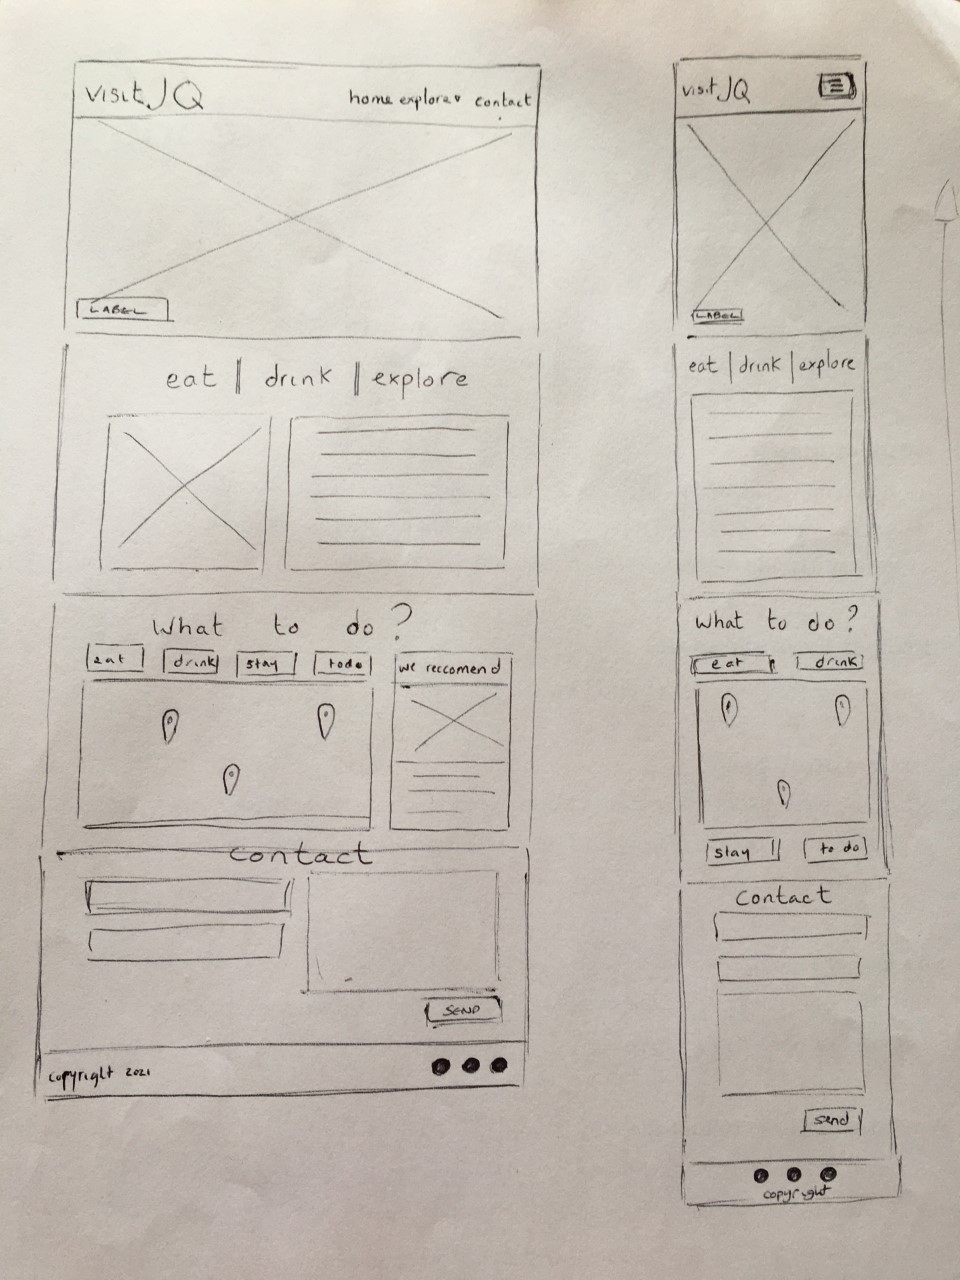 visit JQ
home explore contact
LABEL
eat | drink | explore
What to do?
eat drink stay todo
we reccomend
contact
SEND
copyright 2021
visit JQ
LABEL
eat | drink | explore
What to do?
eat drink
stay to do
Contact
send
copyright